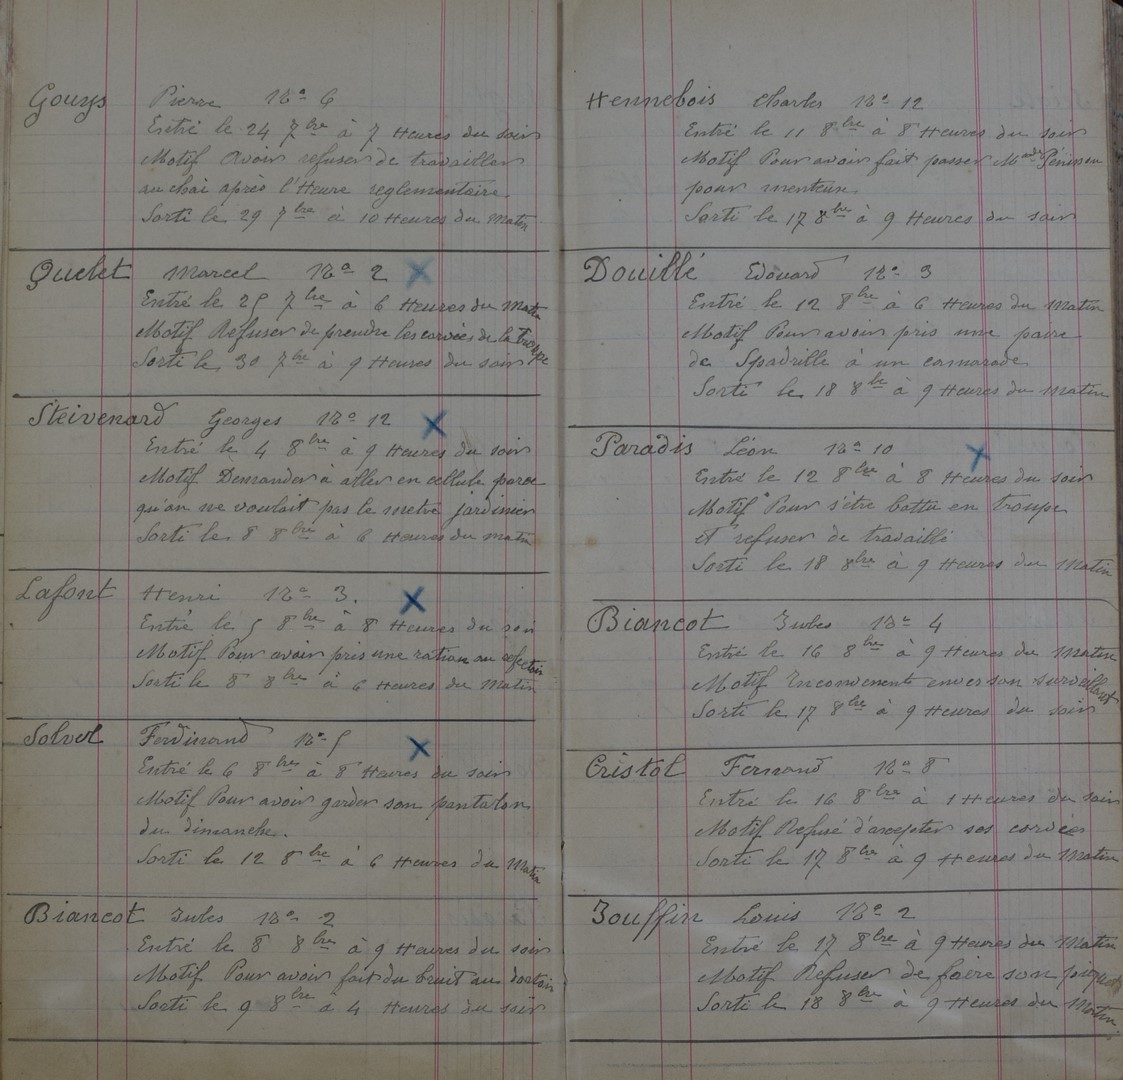 Gouys Pierre No 6
Entré le 24 7bre à 7 Heures du soir
Motif Avoir refuser de travailler
au chai après l'Heure reglementaire
Sorti le 29 7bre à 10 Heures du Matin
Quelet Marcel No 2 X
Entré le 25 7bre à 6 Heures du Matin
Motif Refuser de prendre les corvées de la Troupe
Sorti le 30 7bre à 9 Heures du soir
Steivenard Georges No 12 X
Entré le 4 8bre à 9 Heures du soir
Motif Demander à aller en cellule parce
qu'on ne voulait pas le metre jardinier
Sorti le 8 8bre à 6 Heures du matin
Lafont Henri No 3. X
Entré le 5 8bre à 8 Heures du soir
Motif Pour avoir pris une ration au refectoir
Sorti le 8 8bre à 6 Heures du Matin
Solvet Ferdinand No 5 X
Entré le 6 8bre à 8 Heures du soir
Motif Pour avoir garder son pantalon
du dimanche.
Sorti le 12 8bre à 6 Heures du Matin
Biancot Jules No 2
Entré le 8 8bre à 9 Heures du soir
Motif Pour avoir fait du bruit au dortoir
Sorti le 9 8bre à 4 Heures du soir
Hennebois Charles No 12
Entré le 11 8bre à 8 Heures du soir
Motif Pour avoir fait passer Made
pour menteuse
Sorti le 17 8bre à 9 Heures du soir
Douillé Edouard No 3
Entré le 12 8bre à 6 Heures du Matin
Motif Pour avoir pris une paire
de Spadrille à un camarade
Sorti le 18 8bre à 9 Heures du Matin
Paradis Léon No 10 X
Entré le 12 8bre à 8 Heures du soir
Motif Pour s'être battu en Troupe
et refuser de travaillé
Sorti le 18 8bre à 9 Heures du Matin
Biancot Jules No 4
Entré le 16 8bre à 9 Heures du Matin
Motif Inconvenente envers son surveillant
Sorti le 17 8bre à 9 Heures du soir
Cristol Fernand No 8
Entré le 16 8bre à 1 Heures du soir
Motif Refusé d'accepter ses corvées
Sorti le 17 8bre à 9 Heures du Matin
Jouffin Louis No 2
Entré le 17 8bre à 9 Heures du Matin
Motif Refuser de faire son piquet
Sorti le 18 8bre à 9 Heures du Matin